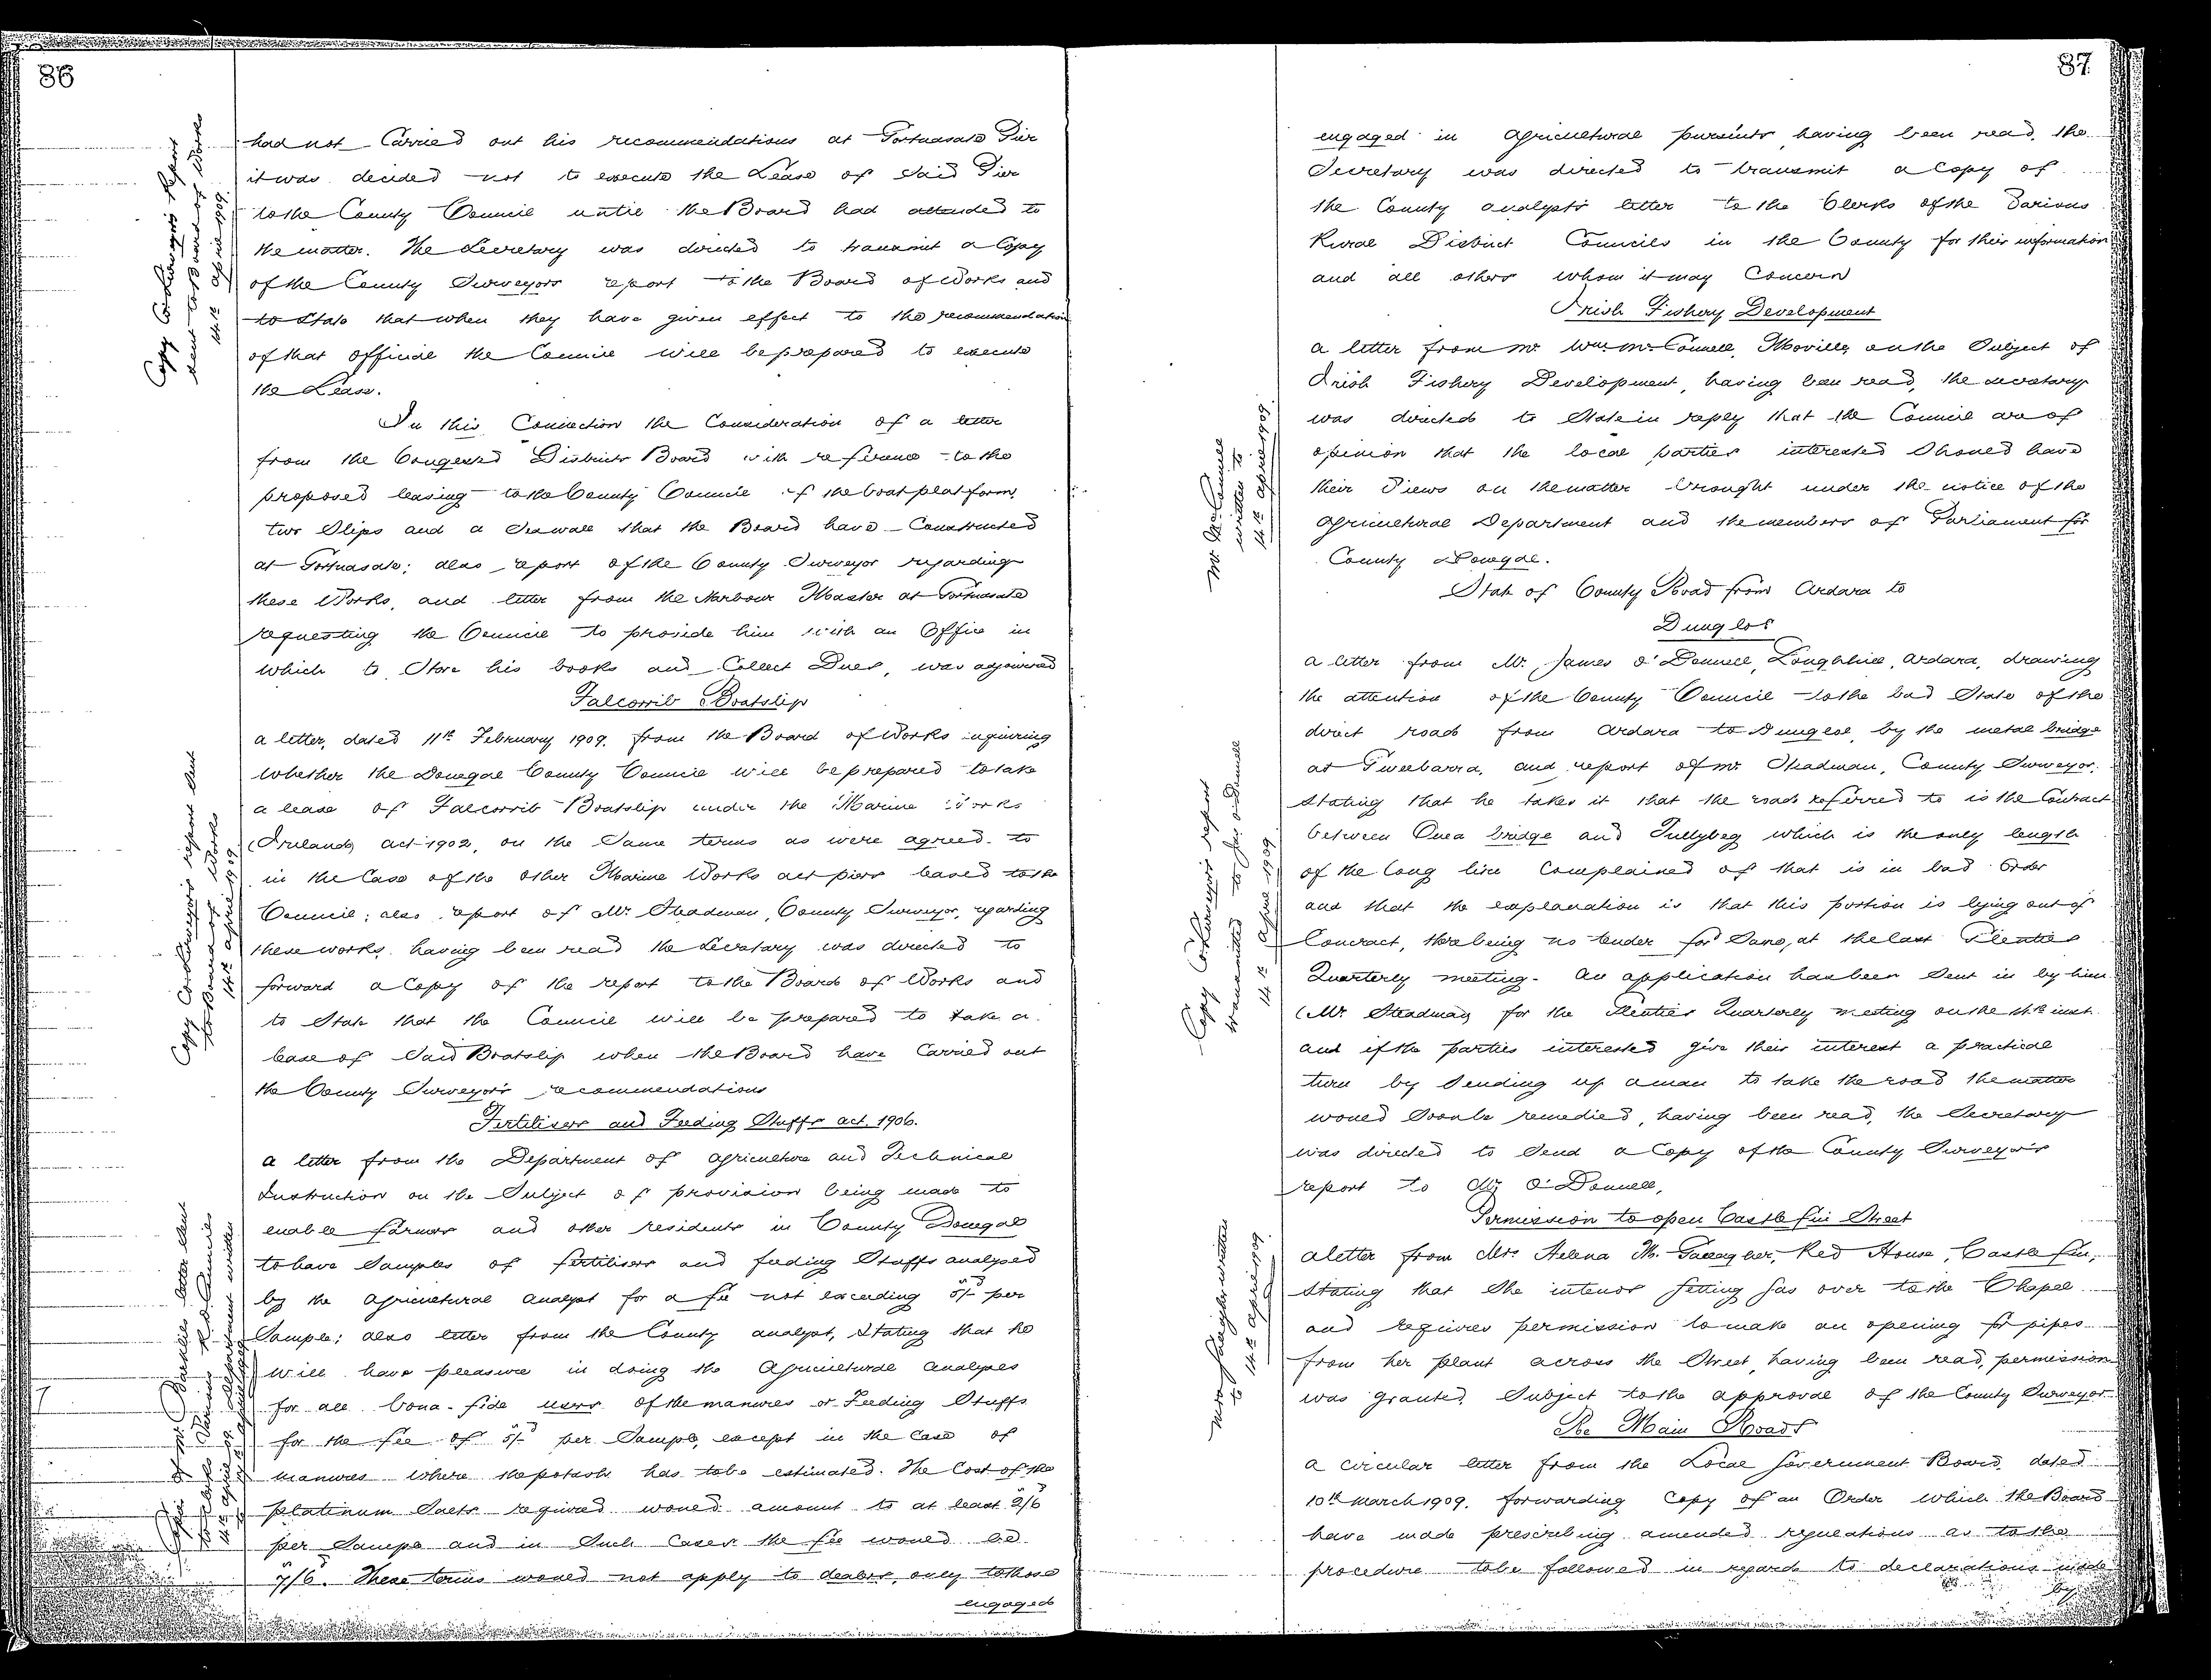 86
had not Carried out his recommendations at Portnasate Pier
it was decided not to execute the Lease of Said Pier
to the County Council until the Board had attended to
the matter. The Secretary was directed to transmit a Copy
of the County Surveyors report to the Board of Works and
to State that when they have given effect to the recommendation
of that official the Council will be prepared to execute
the Lease.
In this Connection the Consideration of a letter
from the Congested Districts Board with reference to the
proposed leasing to the County Council of the boat platform,
two Slips and a Seawall that the Board have Constructed
at Portnasate; also report of the County Surveyor regarding
these Works, and letter from the Harbour Master at Portnasate
requesting the Council to provide him with an Office in
which to Store his books and Collect Dues, was adjourned
Falcorrib Boatslip
a letter, dated 11th February 1909, from the Board of Works inquiring
whether the Donegal County Council will be prepared to take
a lease of Falcorrib Boatslip under the Marine Works
(Ireland) act 1902, on the Same terms as were agreed to
in the Case of the other Marine Works act piers leased to the
Council; also report of Mr. Steadman, County Surveyor, regarding
these works, having been read the Secretary was directed to
forward a Copy of the report to the Board of Works and
to State that the Council will be prepared to take a
lease of Said Boatslip when the Board have Carried out
the County Surveyor's recommendations
Fertilisers and Feeding Stuffs act. 1906.
a letter from the Department of agriculture and Technical
Instruction on the Subject of provision being made to
enable farmers and other residents in County Donegal
to have Samples of fertilisers and feeding Stuffs analysed
by the agricultural analyst for a fee not exceeding 5/- per
Sample; also letter from the County analyst, Stating that he
will have pleasure in doing the agricultural analyses
for all bona-fide users of the manures or Feeding Stuffs
for the fee of 5/- per Sample, except in the Case of
manures where the potash has to be estimated. The Cost of the
platinum Salts required would amount to at least 2/6
per Sample and in Such Cases the fee would be
7/6. These terms would not apply to dealers, only to those
engaged
Copy Co Surveyor's report
sent to Board of Works
14th april 1909
Copy Co Surveyor's report sent
to Board of Works
14th april 1909
87
engaged in agricultural pursuits having been read, the
Secretary was directed to transmit a Copy of
the County analyst's letter to the Clerks of the Various
Rural District Councils in the County for their information
and all others whom it may Concern
Irish Fishery Development
a letter from Mr. Wm. McConnell, Moville, on the Subject of
Irish Fishery Development, having been read, the Secretary
was directed to State in reply that the Council are of
opinion that the local parties interested Should have
their Views on the matter brought under the notice of the
agricultural Department and the members of Parliament for
County Donegal.
State of County Road from Ardara to
Dungloe
a letter from Mr. James O'Donnell, Loughhill, Ardara, drawing
the attention of the County Council to the bad State of the
direct road from Ardara to Dungloe, by the metal bridge
at Gweebarra, and report of Mr. Steadman, County Surveyor,
Stating that he takes it that the road referred to is the Contract
between Owea bridge and Tullybeg which is the only length
of the long line Complained of that is in bad Order
and that the explanation is that this portion is lying out of
Contract, there being no tender for Same, at the last Glenties
Quarterly meeting. An application has been Sent in by him
(Mr Steadman) for the Glenties Quarterly meeting on the inst.
and if the parties interested give their interest a practical
turn by Sending up a man to take the road the matter
would Soon be remedied, having been read, the Secretary
was directed to Send a Copy of the County Surveyor's
report to Mr O'Donnell,
Permission to open Castlefin Street
a letter from Mrs Helena M. Gallagher, Red House, Castlefin,
Stating that She intends getting Gas over to the Chapel
and requires permission to make an opening for pipes
from her plant across the Street, having been read, permission
was granted, Subject to the approval of the County Surveyor
Re Main Roads
a circular letter from the Local Government Board, dated
10th March 1909, forwarding Copy of an Order which the Board
have made prescribing amended regulations as to the
procedure to be followed in regard to declarations made
by
Mr McConnell
written to
14th april 1909
Copy Co Surveyor's report
transmitted to Jas O'Donnell
14th april 1909
Mrs Gallagher written
to 14th april 1909